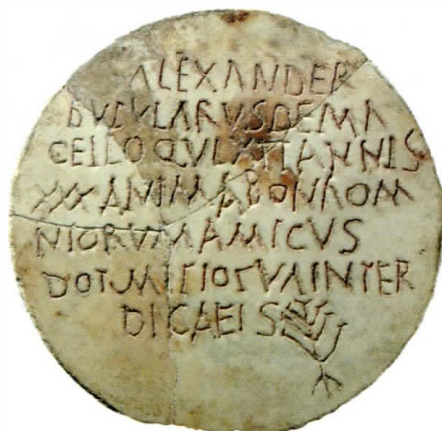 ALEXANDER
BVBVLARVSDEMA
CELLOQVIXITANNIS
XXXANIMABONAOM
NIORVMAMICVS
DORMITIOTVAINTER
DICAEIS